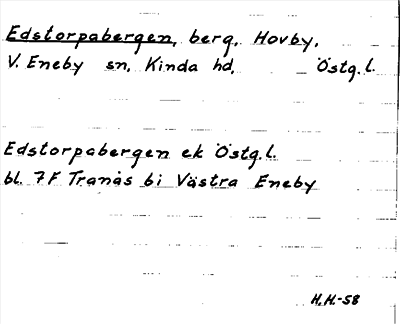 Edstorpabergen, berg, Hovby,
V. Eneby sn, Kinda hd, Östg.l.
Edstorpabergen ek Östg.l.
bl. 7F Tranås bi Västra Eneby
H.H.-58